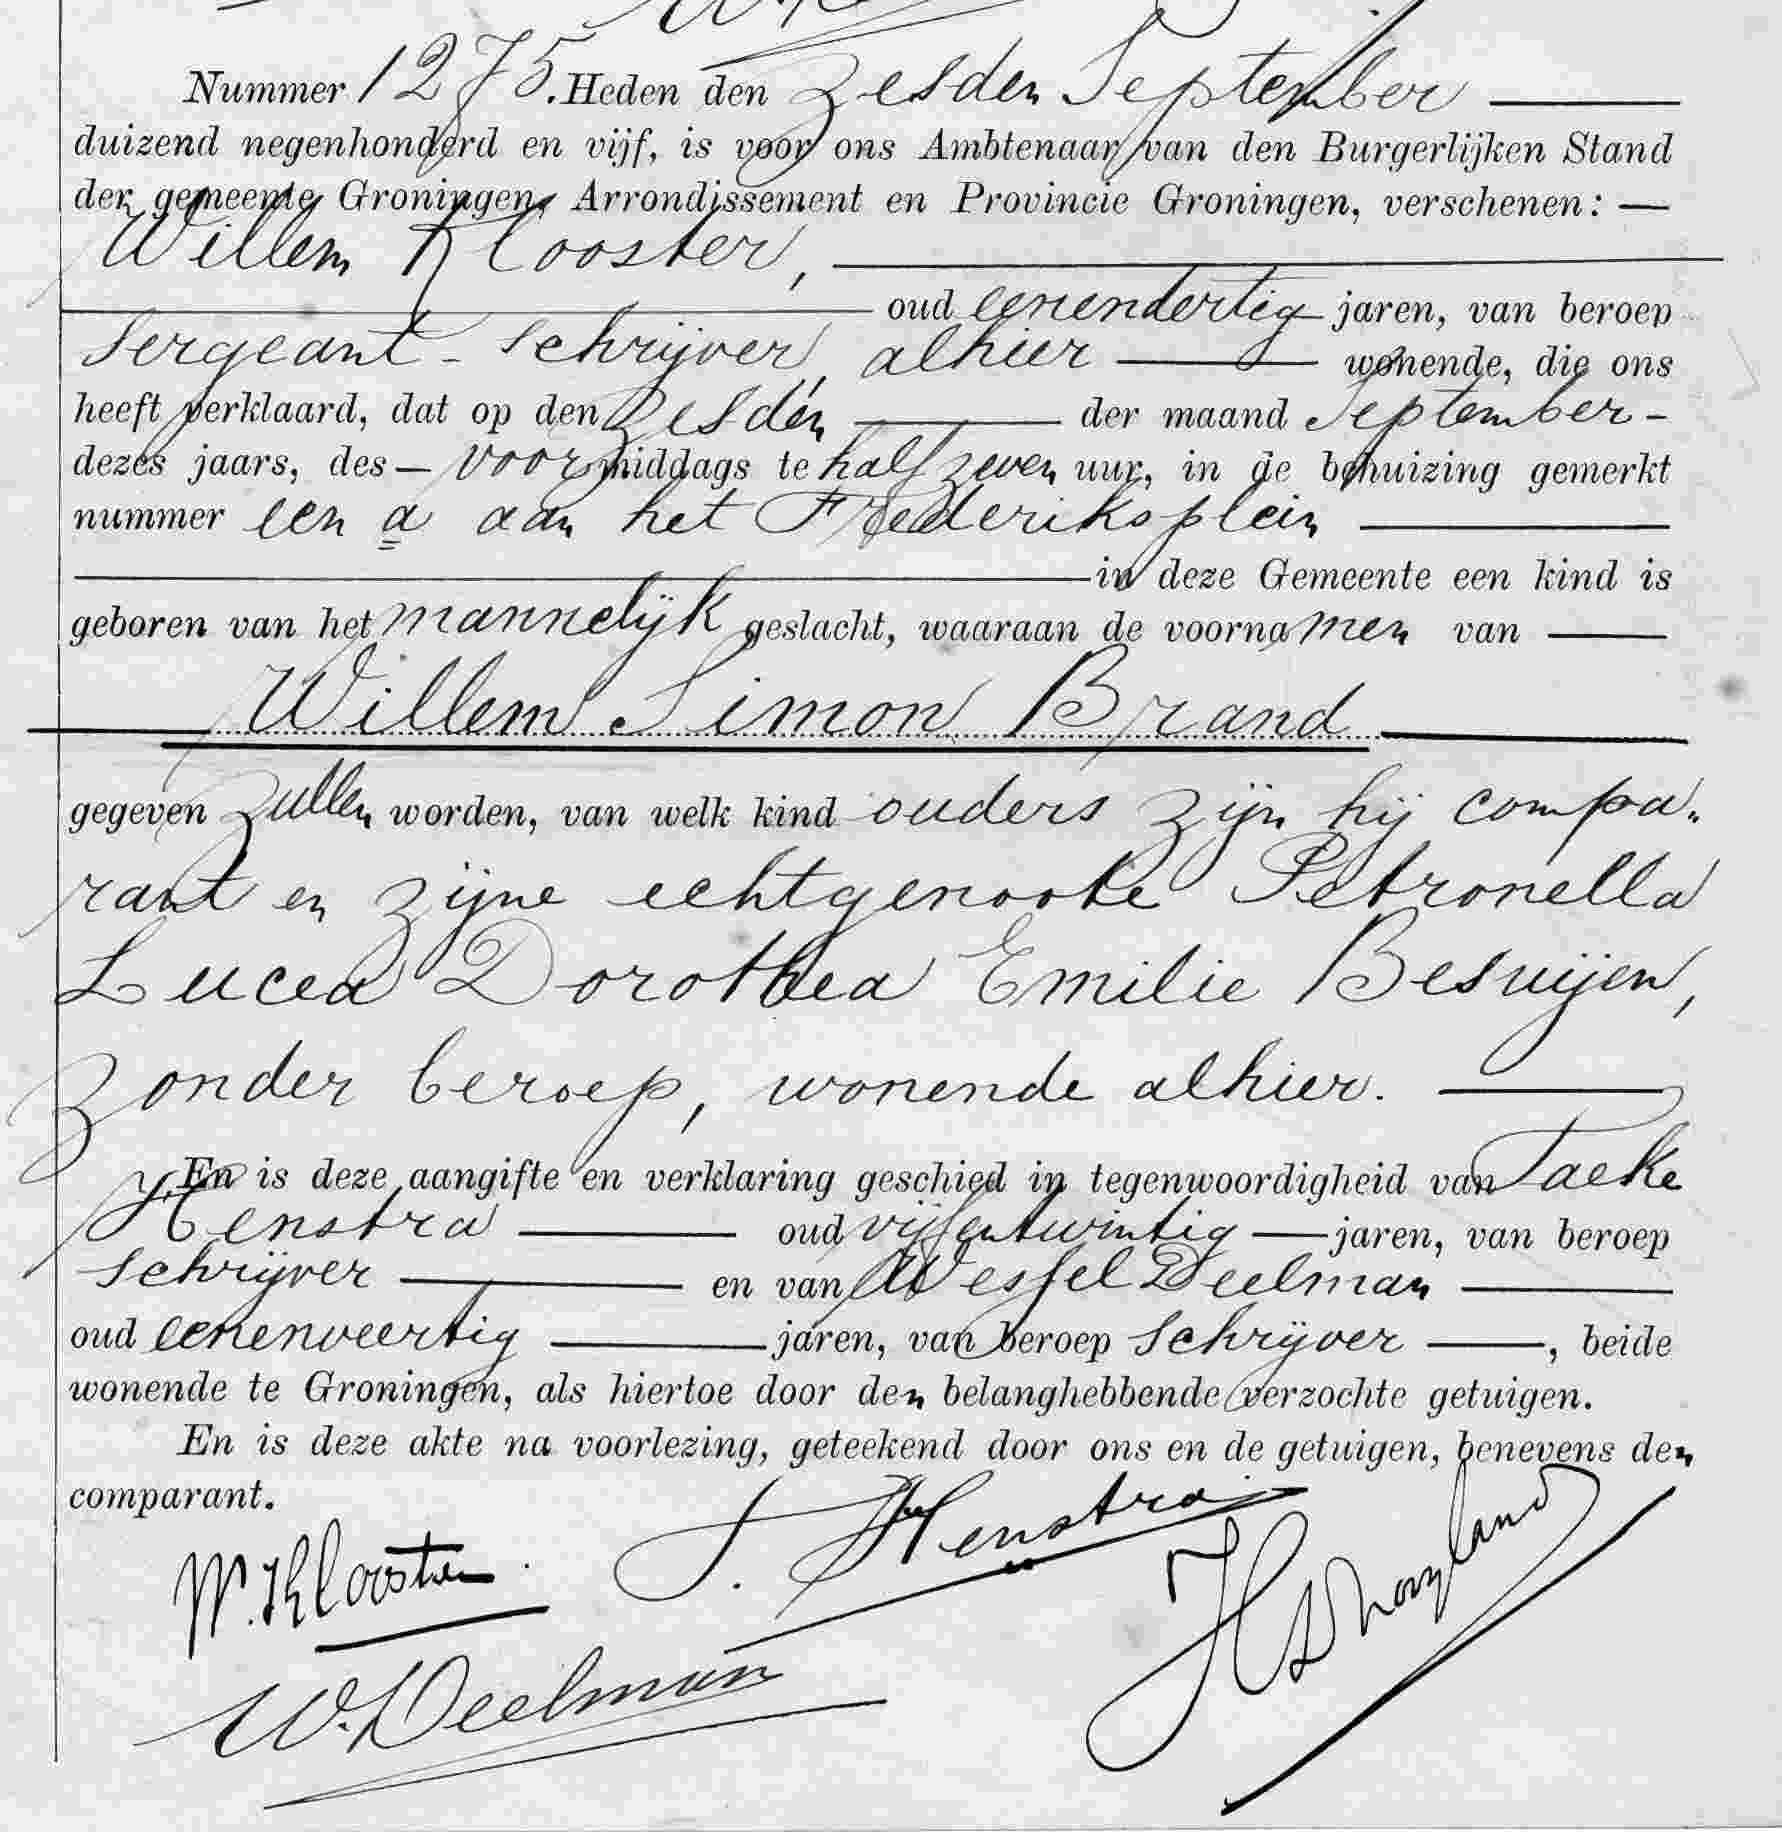 Nummer 1275. Heden den zesden September
duizend negenhonderd en vijf, is voor ons Ambtenaar van den Burgerlijken Stand
der gemeente Groningen, Arrondissement en Provincie Groningen, verschenen: —
Willem Klooster,
oud eenendertig jaren, van beroep
sergeant-schrijver, alhier wonende, die ons
heeft verklaard, dat op den zesden der maand September -
dezes jaars, des — voormiddags te half zeven uur, in de behuizing gemerkt
nummer een a aan het Frederiksplein
in deze Gemeente een kind is
geboren van het mannelijk geslacht, waaraan de voornamen van
Willem Simon Brand
gegeven zullen worden, van welk kind ouders zijn hij compa„
rant en zijne echtgenoote Petronella
Lucea Dorothea Emilie Besuijen,
zonder beroep, wonende alhier.
En is deze aangifte en verklaring geschied in tegenwoordigheid van Taeke
Henstra oud vijfentwintig jaren, van beroep
schrijver en van Wessel Deelman
oud eenenveertig jaren, van beroep schrijver, beide
wonende te Groningen, als hiertoe door den belanghebbende verzochte getuigen.
En is deze akte na voorlezing, geteekend door ons en de getuigen, benevens den
comparant.
W. Klooster. T. Henstra
W. Deelman